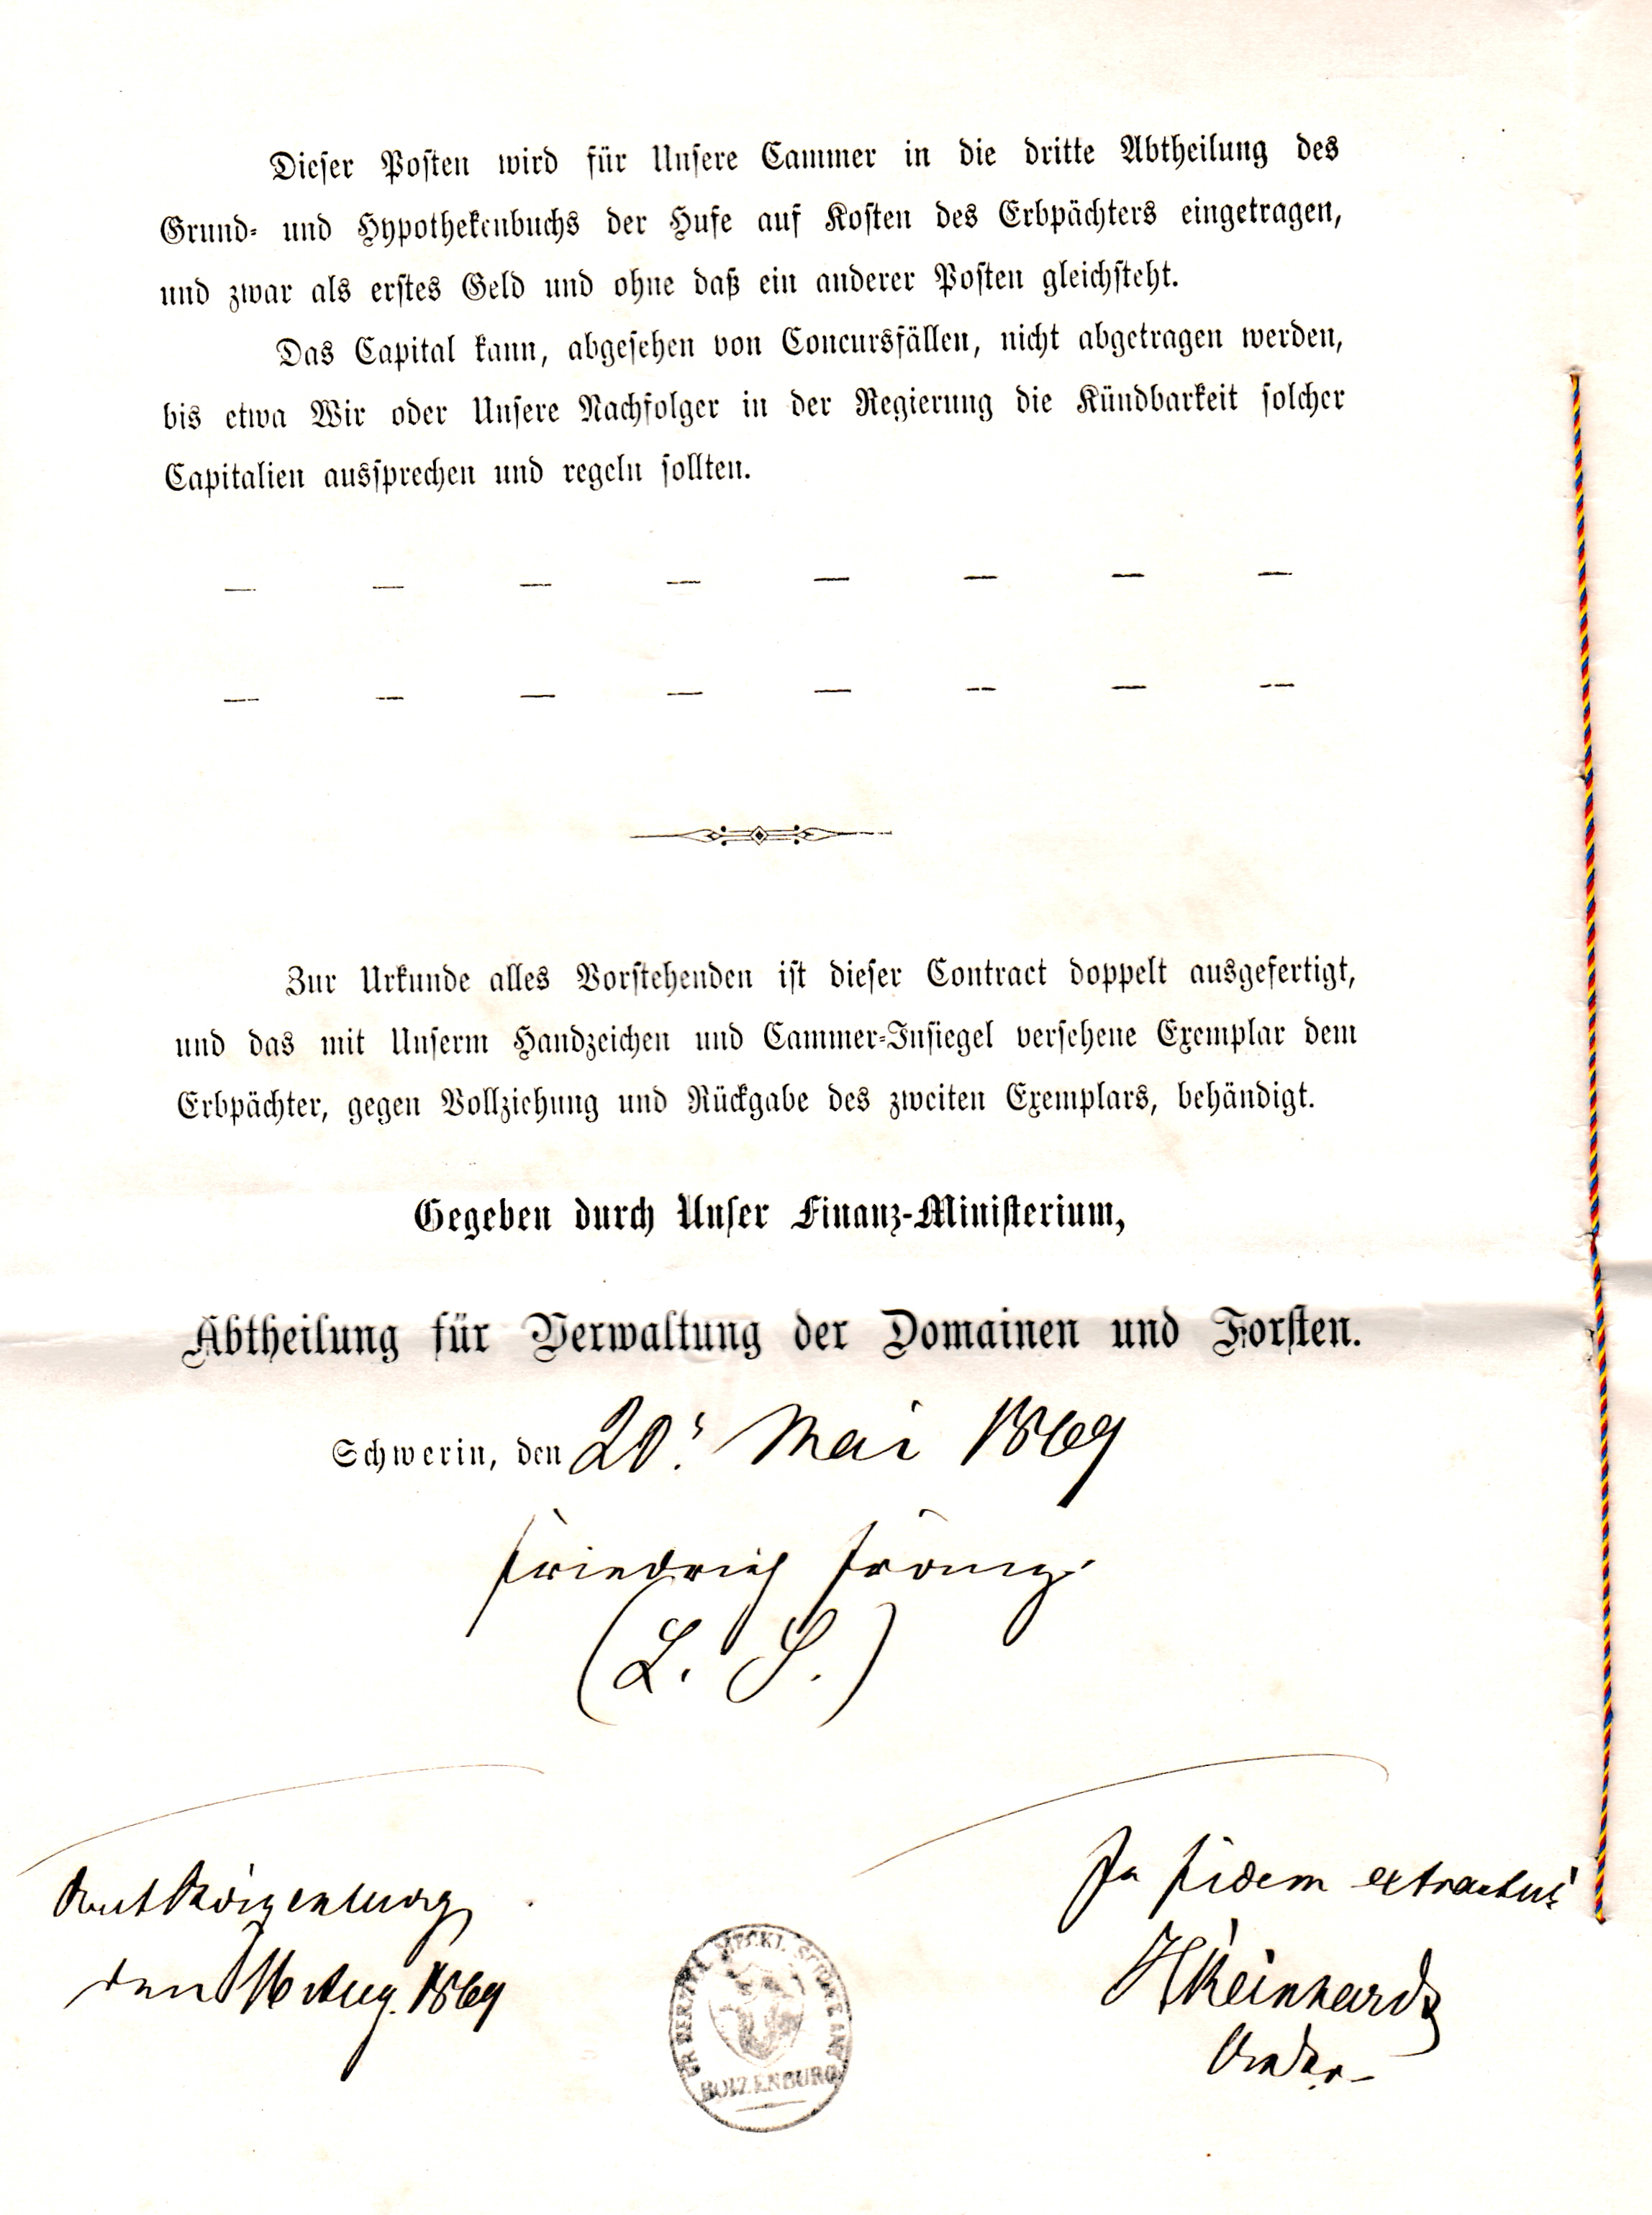 Dieser Posten wird für Unsere Cammer in die dritte Abtheilung des
Grund- und Hypothekenbuchs der Hufe auf Kosten des Erbpächters eingetragen,
und zwar als erstes Geld und ohne daß ein anderer Posten gleichsteht.
Das Capital kann, abgesehen von Concursfällen, nicht abgetragen werden,
bis etwa Wir oder Unsere Nachfolger in der Regierung die Kündbarkeit solcher
Capitalien aussprechen und regeln sollten.
— — — — — — — —
— — — — — — — —
Zur Urkunde alles Vorstehenden ist dieser Contract doppelt ausgefertigt,
und das mit Unserm Handzeichen und Cammer-Insiegel versehene Exemplar dem
Erbpächter, gegen Vollziehung und Rückgabe des zweiten Exemplars, behändigt.
Gegeben durch Unser Finanz-Ministerium,
Abtheilung für Verwaltung der Domainen und Forsten.
Schwerin, den 20. Mai 1869
Friedrich Franz.
(L. S.)
Amt Boizenburg
den 16 Aug. 1869
In fidem extractus
HReinhard
BOIZENBURG